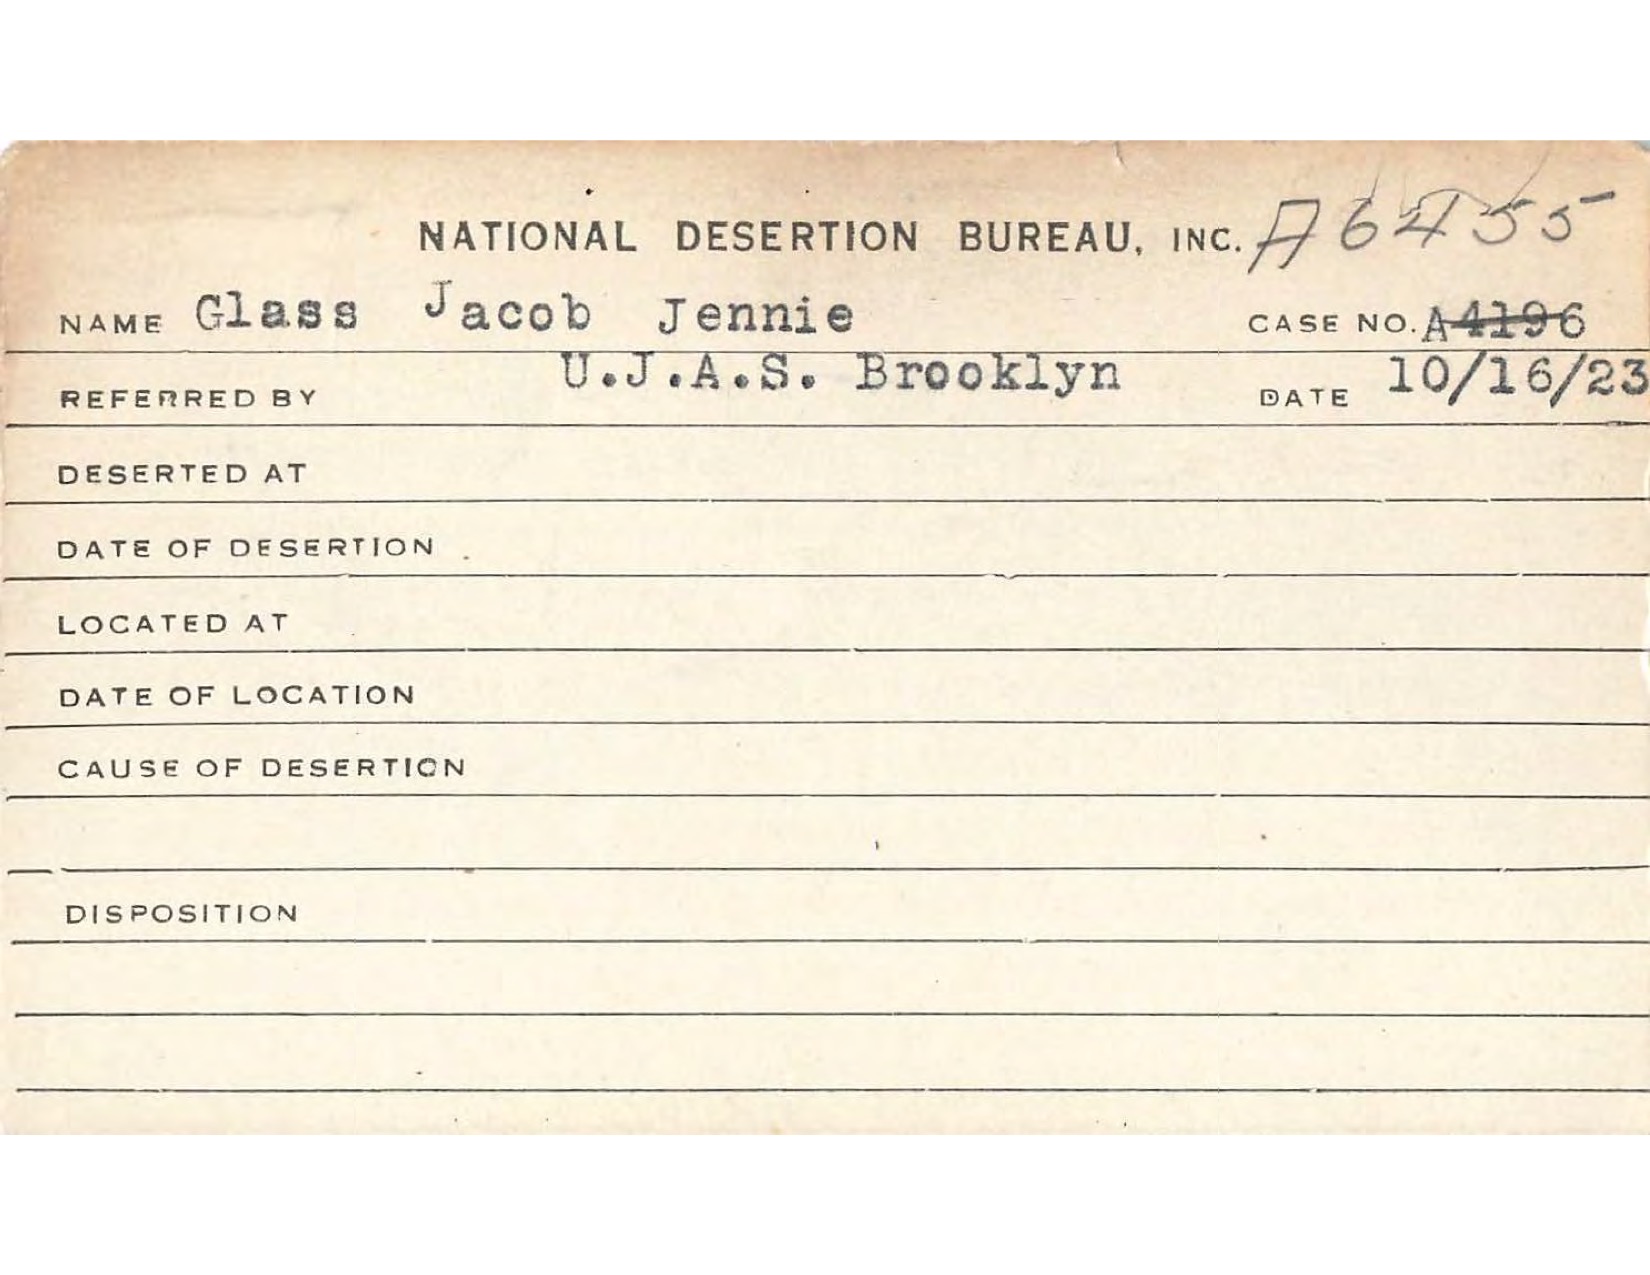 NATIONAL DESERTION BUREAU, INC. A6455
NAME Glass Jacob Jennie CASE NO. A4196
REFERRED BY U.J.A.S. Brooklyn DATE 10/16/23
DESERTED AT
DATE OF DESERTION
LOCATED AT
DATE OF LOCATION
CAUSE OF DESERTION
DISPOSITION